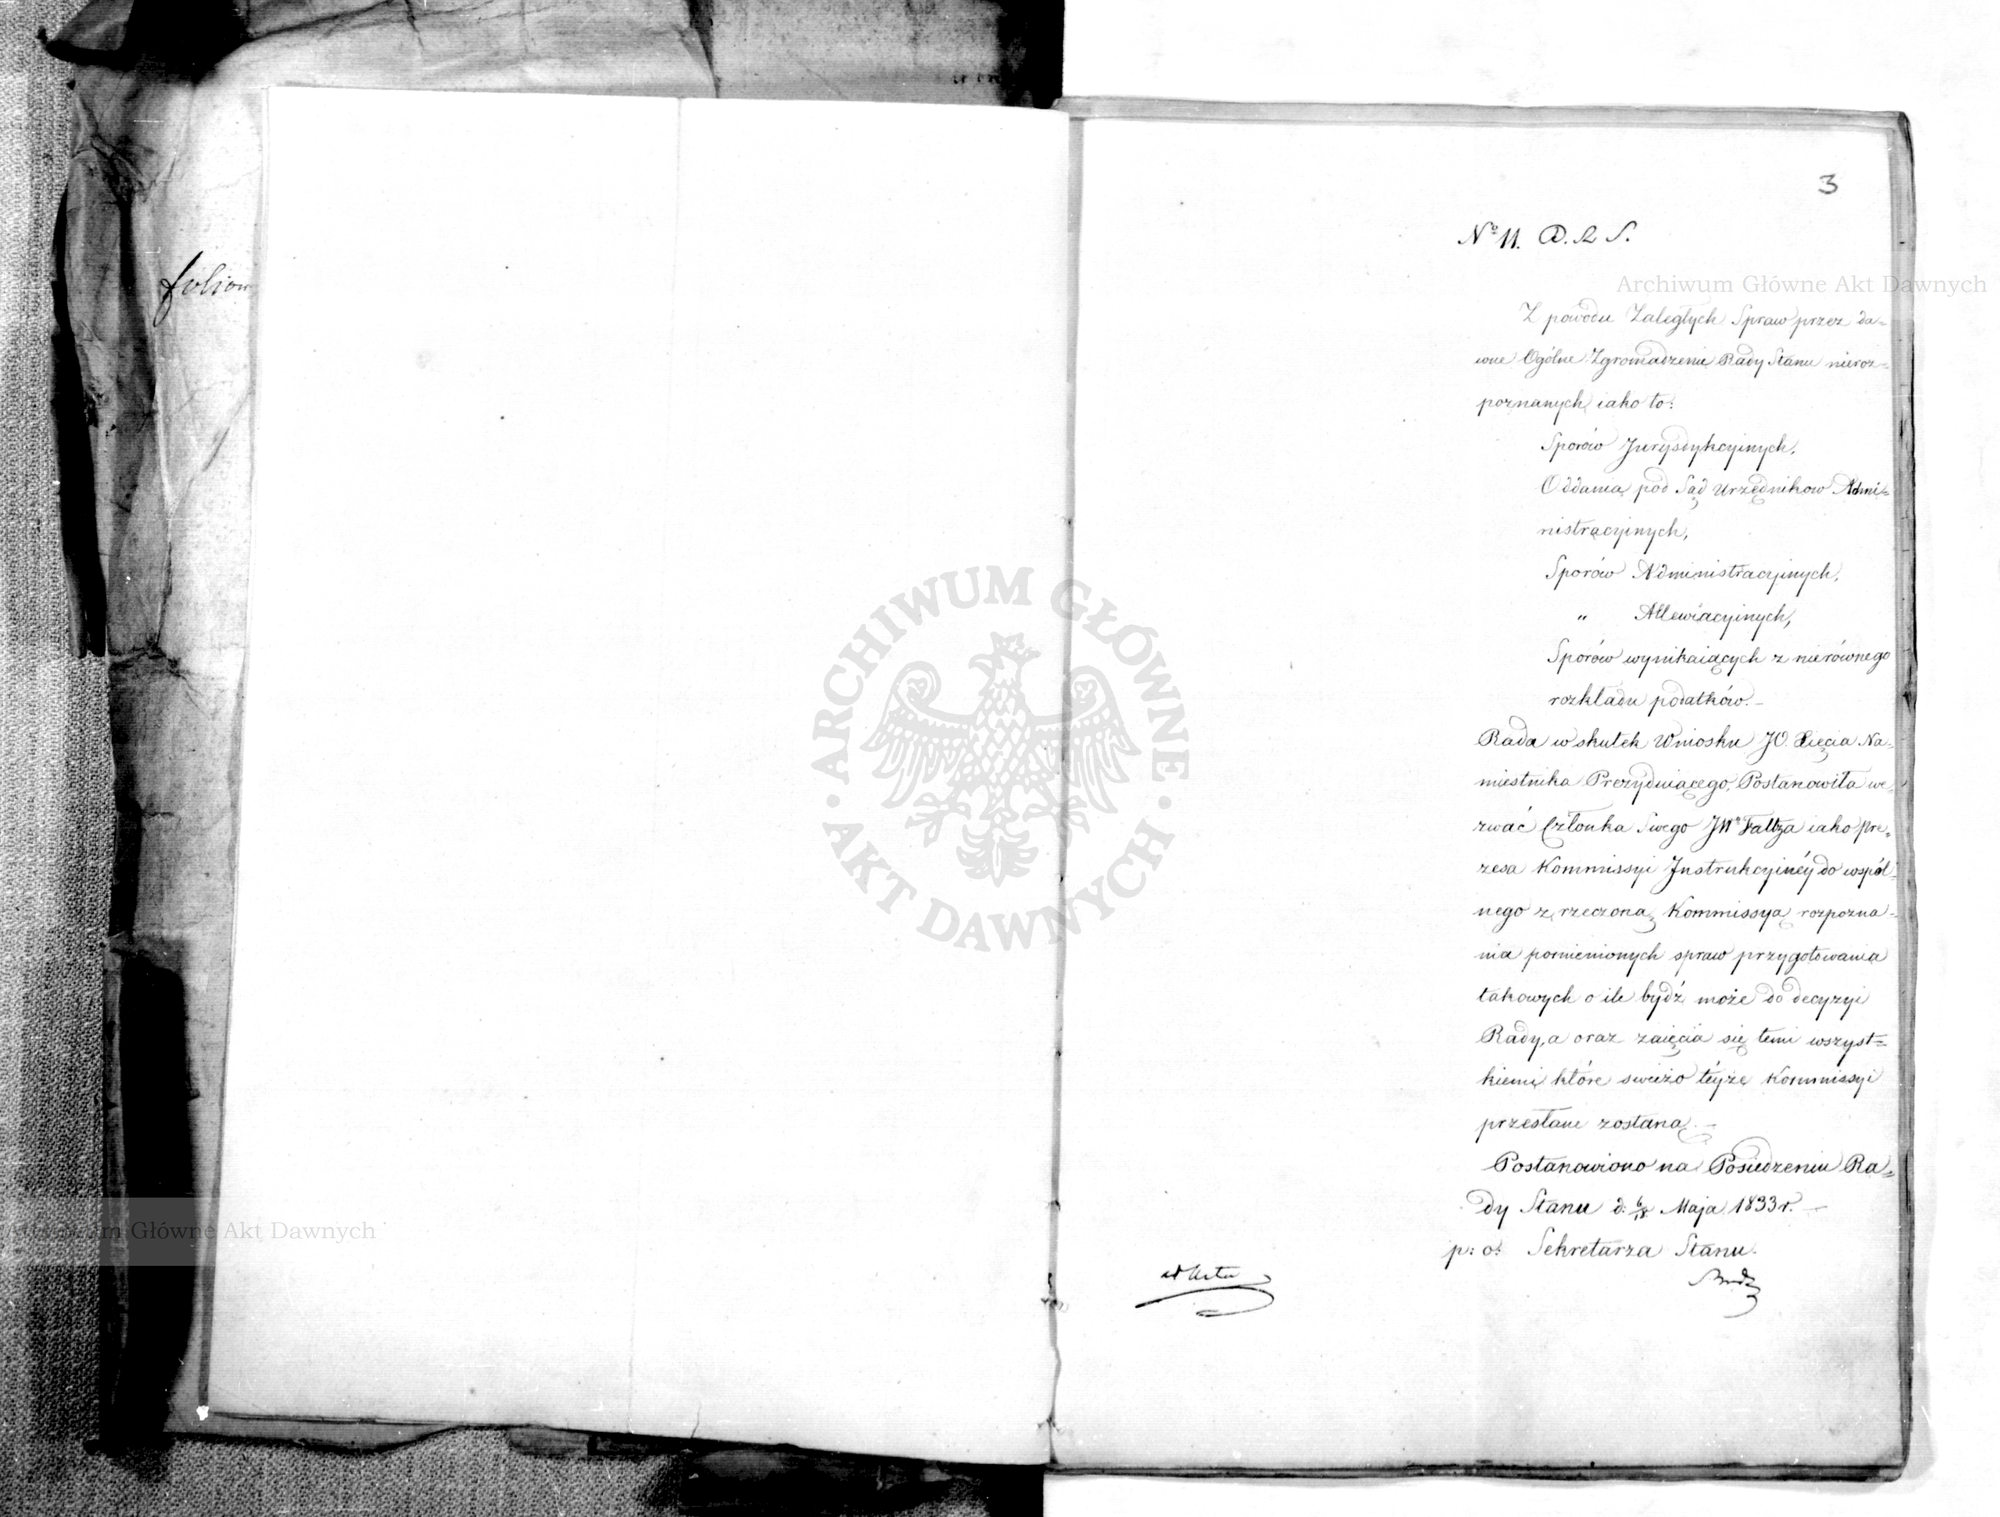 folion
3
No 11. D. R S.
Archiwum Główne Akt Dawnych
Z powodu Zaległych Spraw przez da-
wne Ogólne Zgromadzenie Rady Stanu nieroz-
poznanych iako to:
Sporów Jurysdykcyinych,
Oddania pod Sąd Urzędnikow Admi-
nistracyinych,
Sporów Administracyinych,
" Allewiacyinych,
Sporów wynikaiących z nierównego
rozkładu podatków.-
Rada w skutek Wniosku JO. Xięcia Na-
miestnika Prezyduiącego, Postanowiła we-
zwać Członka Swego JWo Faltza iako Pre-
zesa Kommissyi Instrukcyinéy do wspól-
nego z rzeczoną Kommissyą rozpozna-
nia pomienionych spraw przygotowania
takowych o ile bydź może do decyzyi
Rady, a oraz zaięcia się temi wszyst-
kiemi które swieżo téyże Kommissyi
przesłane zostaną.-
Postanowiono na Posiedzeniu Ra-
dy Stanu d: 6/18 Maja 1833 r.-
p: o: Sekretarza Stanu.
ad Acta
ARCHIWUM GŁÓWNE
AKT DAWNYCH
Archiwum Główne Akt Dawnych